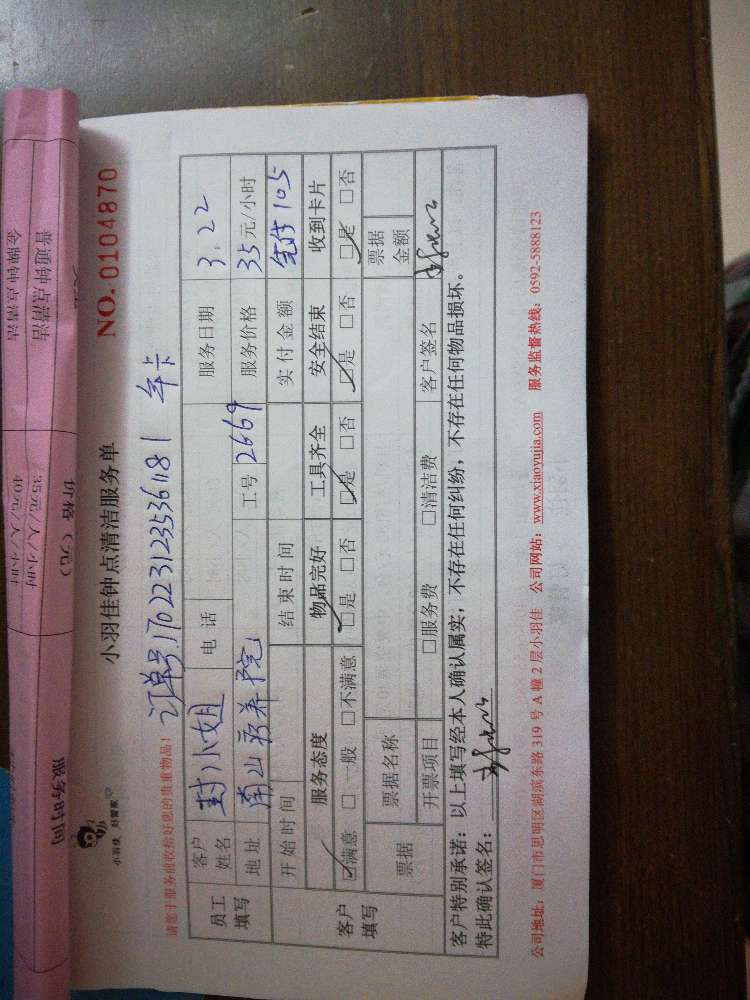 普通钟点清洁 35元/人/小时
金牌钟点清洁 40元/人/小时
价格（元）
服务时间
小羽佳 好管家
小羽佳钟点清洁服务单
NO. 0104870
请您于服务前收拾好您的贵重物品！
订单号1702231235361181 年卡
员工填写
客户姓名 封小姐 电话 服务日期 3.22
地址 南山疗养院 工号 2669 服务价格 35元/小时
客户填写
开始时间 结束时间 实付金额 105
服务态度 物品完好 工具齐全 安全结束 收到卡片
☑满意 □一般 □不满意 ☑是 □否 ☑是 □否 ☑是 □否 ☑是 □否
票据 票据名称 票据金额
开票项目 □服务费 □清洁费 客户签名
客户特别承诺：以上填写经本人确认属实，不存在任何纠纷，不存在任何物品损坏。
特此确认签名：
公司地址：厦门市思明区湖滨东路319号A幢2层小羽佳 公司网站：www.xiaoyujia.com 服务监督热线：0592-5888123